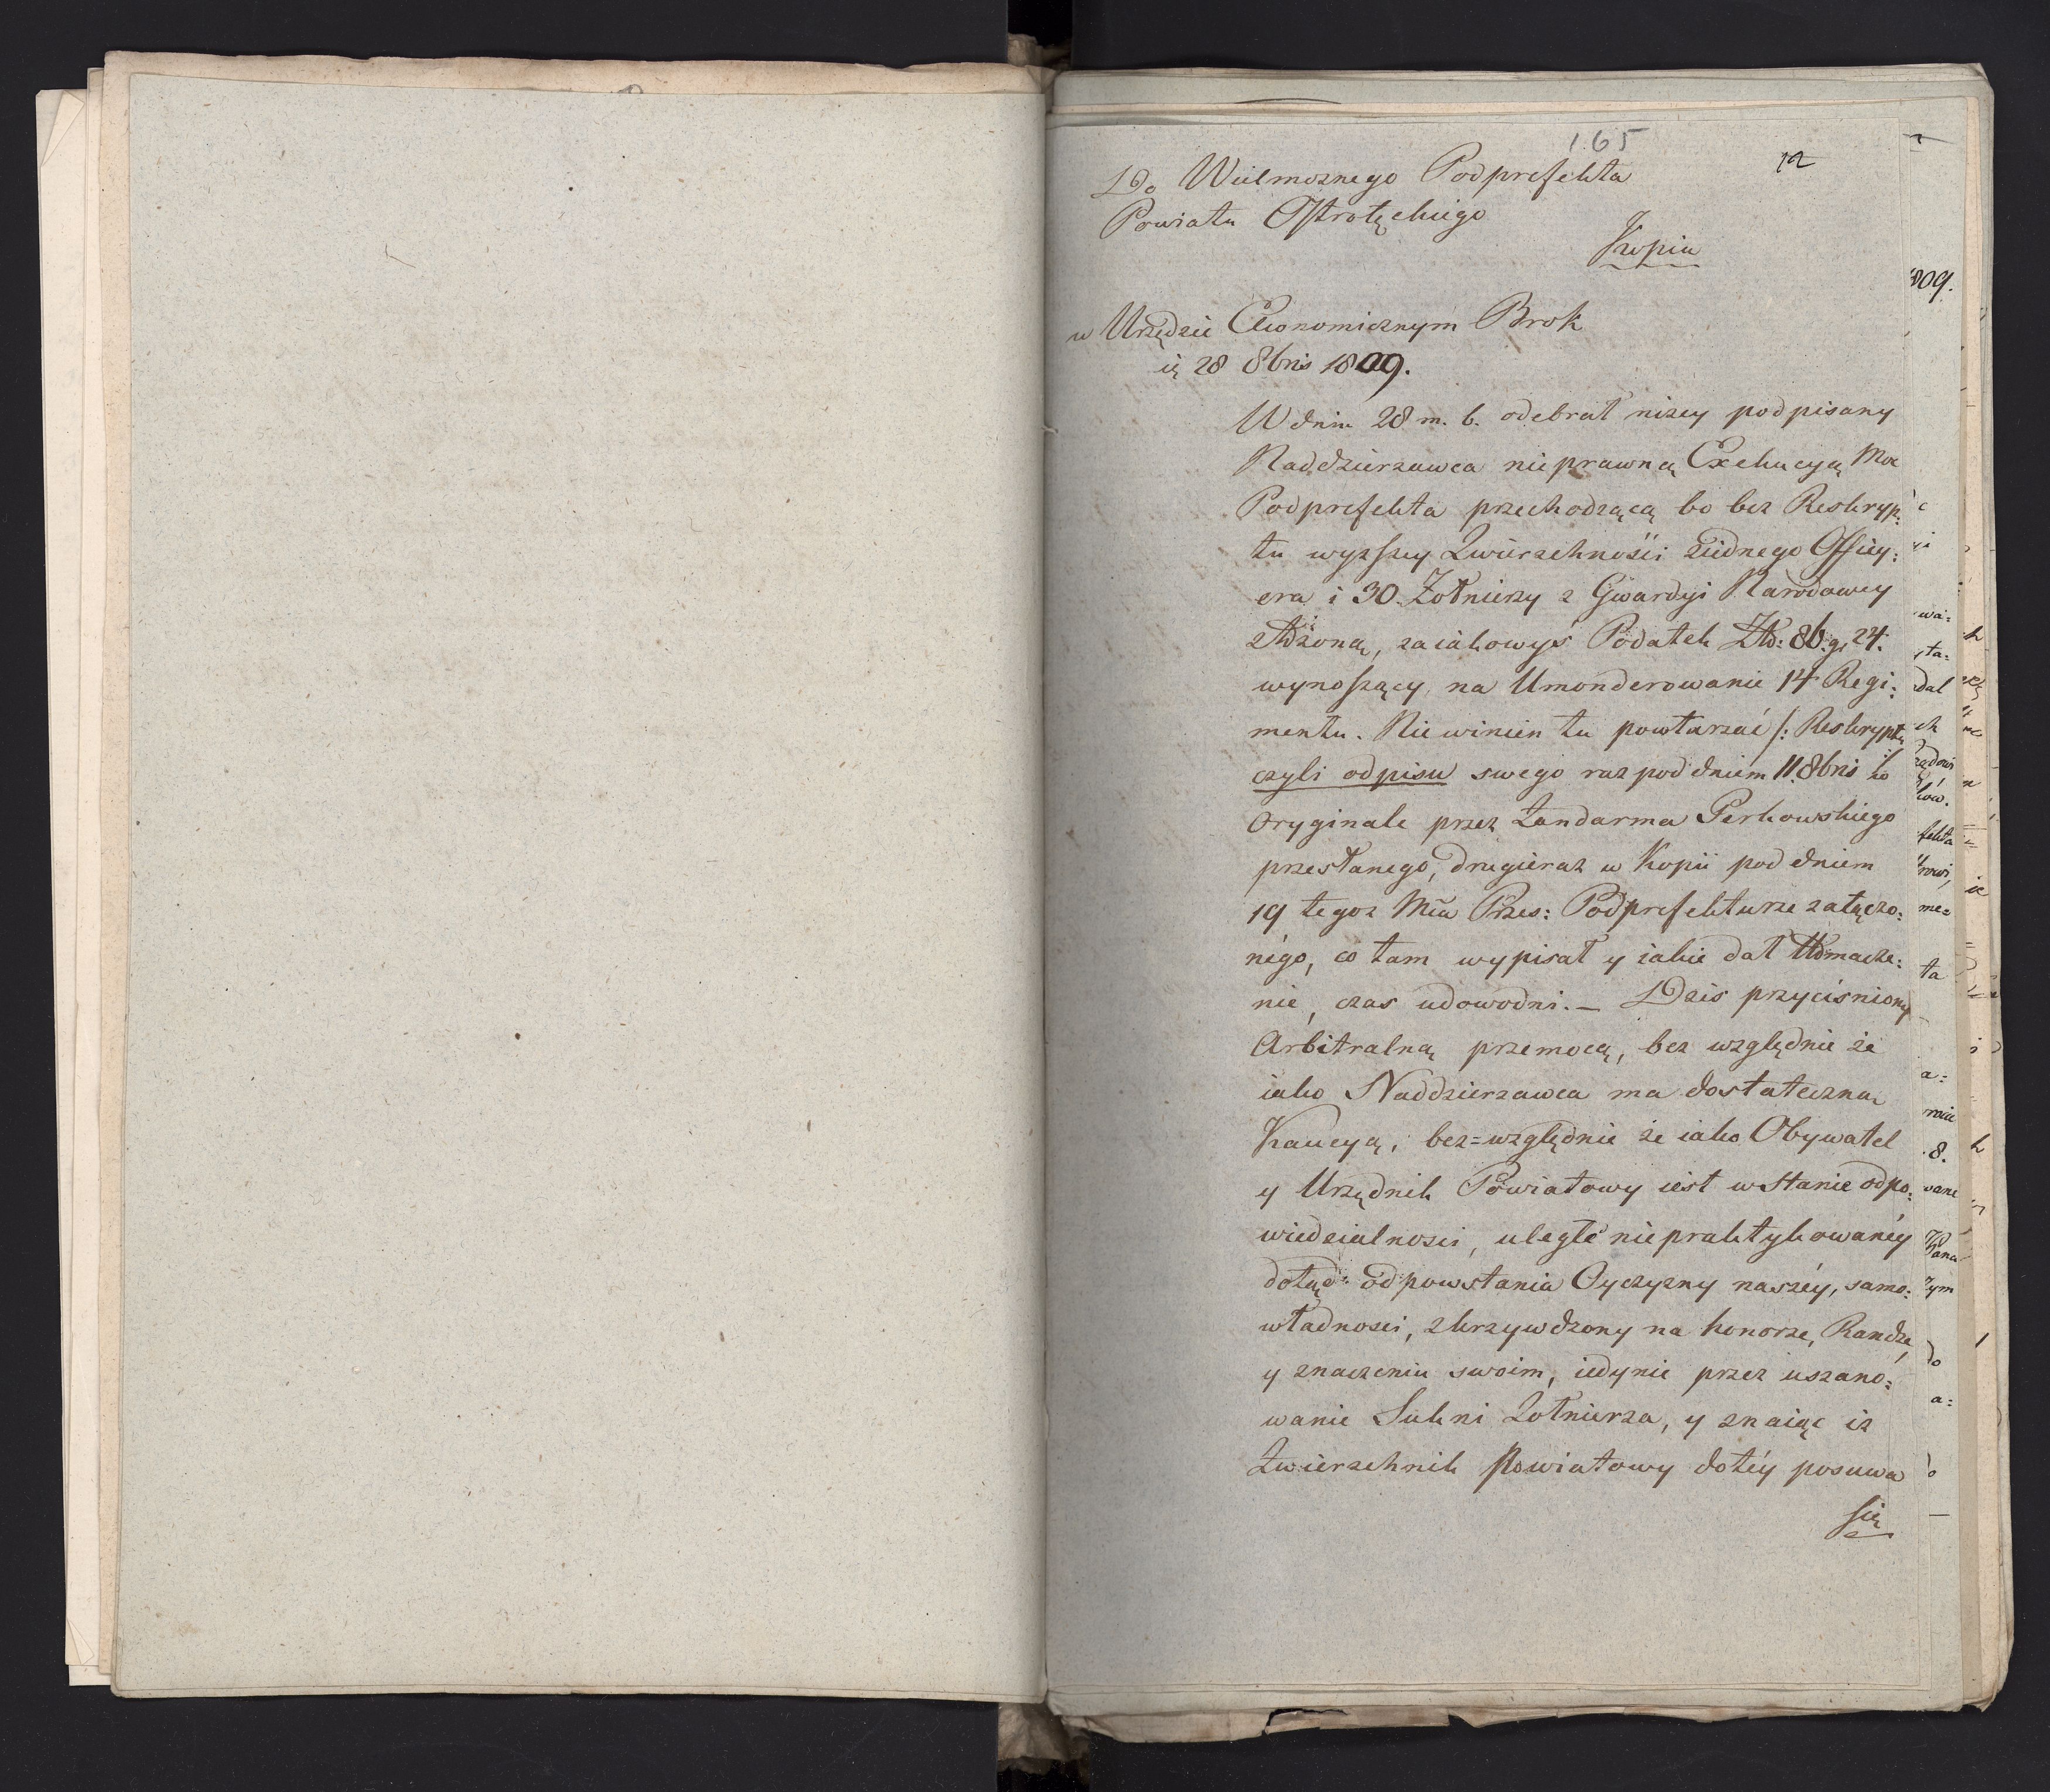 165
12
Do Wielmoznego Podprefekta
Powiatu Ostrołęckiego
Kopia
w Urzędzie Ekonomicznym Brok
28 8bris 1809.
W dniu 28 m. b. odebrał nizey podpisany
Naddzierzawca nieprawną Exekucyą Moc
Podprefekta przechodzącą bo bez Reskryp:
tu wyzszey Zwierzchności Officy:
era i 30. Zołnierzy z Gwardyi Narodowey
złożoną, za iakowyś Podatek Złł: 86. g. 24.
wynoszący, na Umonderowanie 14 Regi:
mentu. Niewinien tu powtarzać /: Reskryptu
czyli odpisu swego raz pod dniem 11. 8bris
Oryginale przez Zandarma Perkowskiego
przesłanego, drugieraz w Kopii pod dniem
19 tegoz Mca Przes: Podprefekturze załączo:
nego, co tam wypisał y iakie dał tłomacze:
nie, czas udowodni. — Dzis przycisniony
Arbitralną przemocą, bez względnie że
iako Naddzierzawca ma dostateczną
Kaucyą, bez=względnie że iako Obywatel
y Urzędnik Powiatowy iest w stanie odpo:
wiedzialnosci, uległ niepraktykowaney
dotąd od powstania Oyczyzny naszéy, samo:
władnosci, zkrzywdzony na honorze, Randze,
y znaczeniu swoim, iedynie przez uszano:
wanie Sukni Zołnierza, y znaiąc iz
Zwierzchnik Powiatowy dotéy posuwa
się